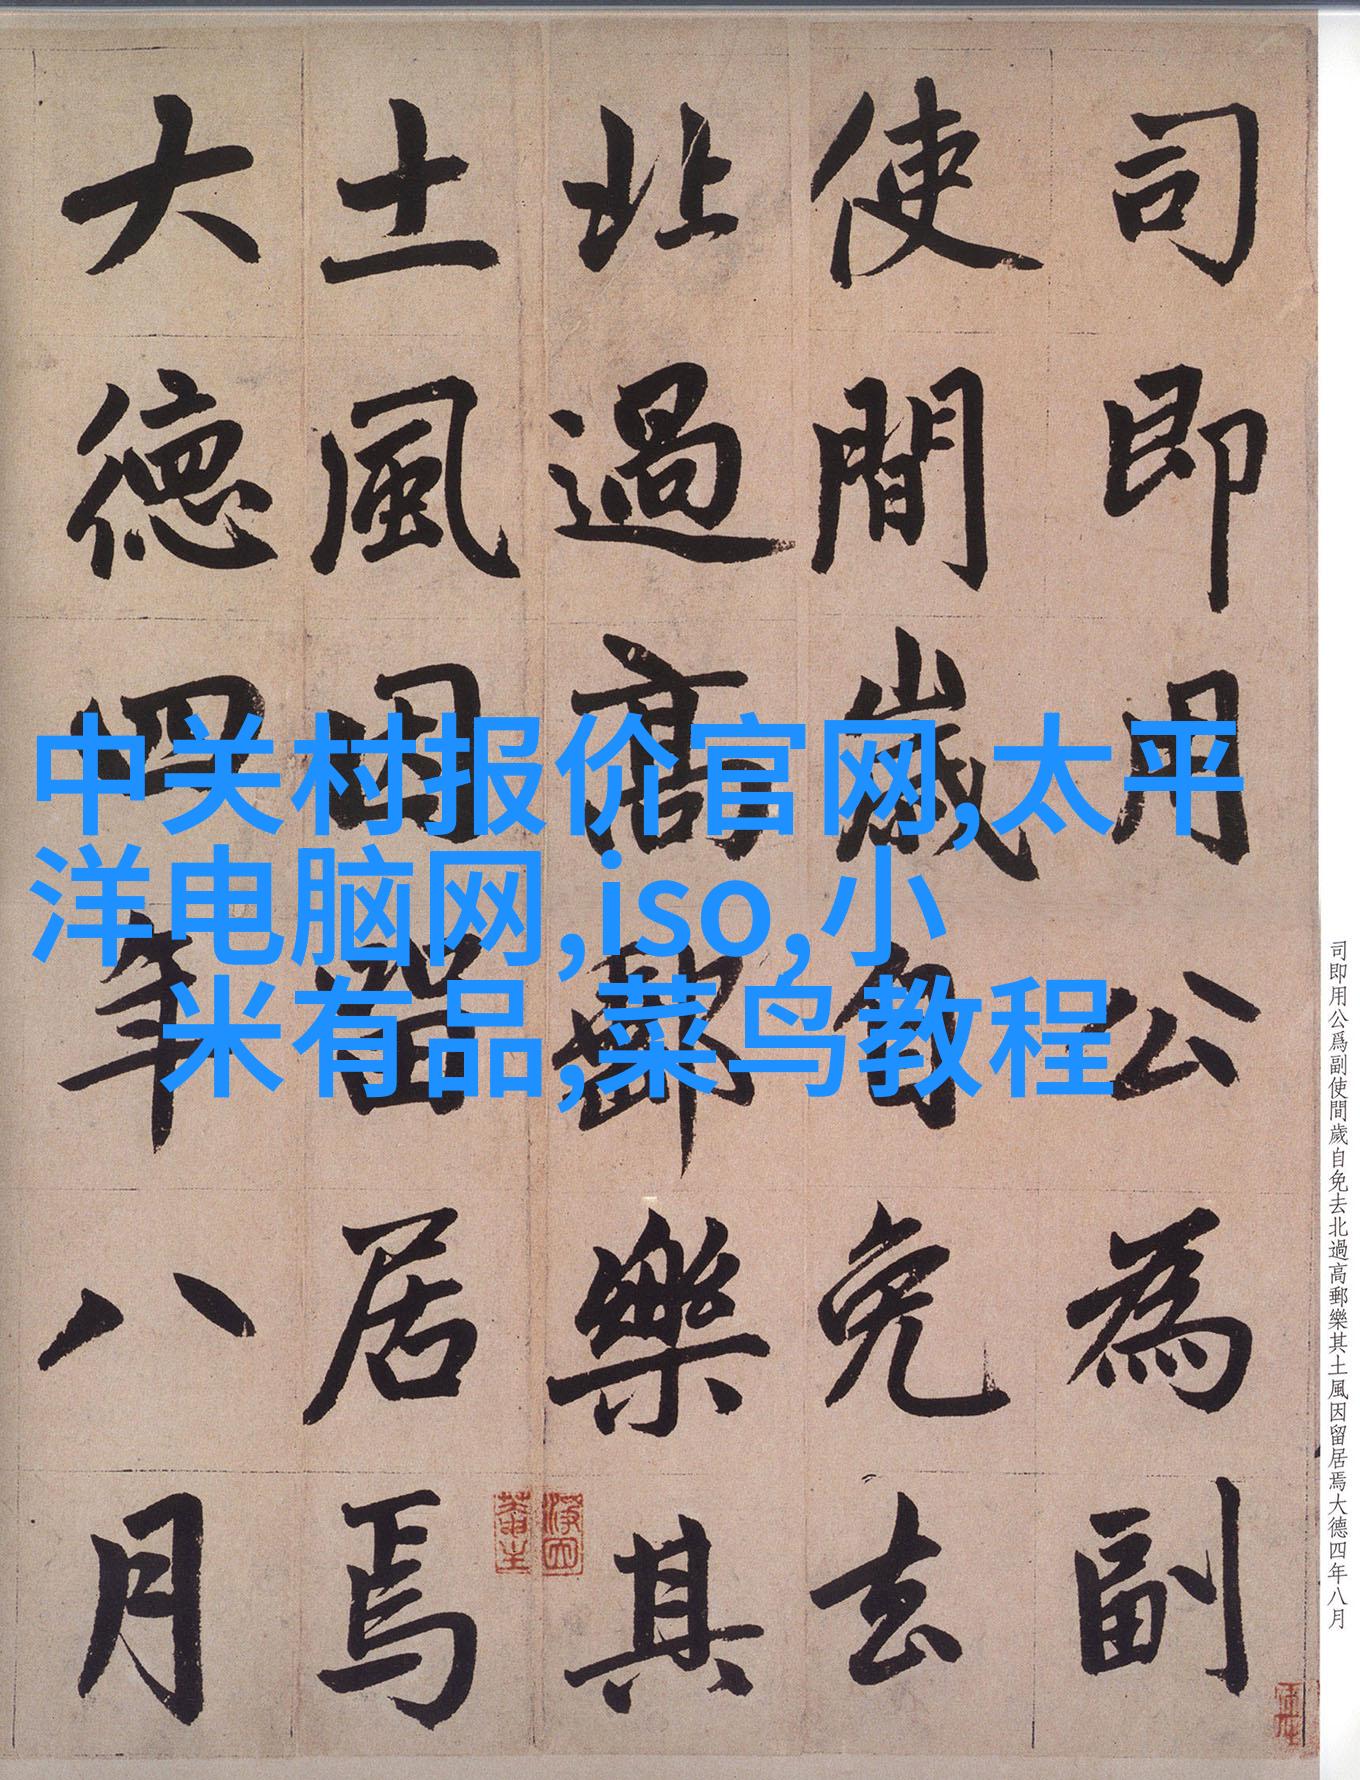 司即用公為副
使間歲自免去
北過高郵樂其
土風因留居焉
大德四年八月
中关村报价官网,太平
洋电脑网,iso,小
米有品,菜鸟教程
司即用公爲副使間歲自免去北過高郵樂其土風因留居焉大德四年八月